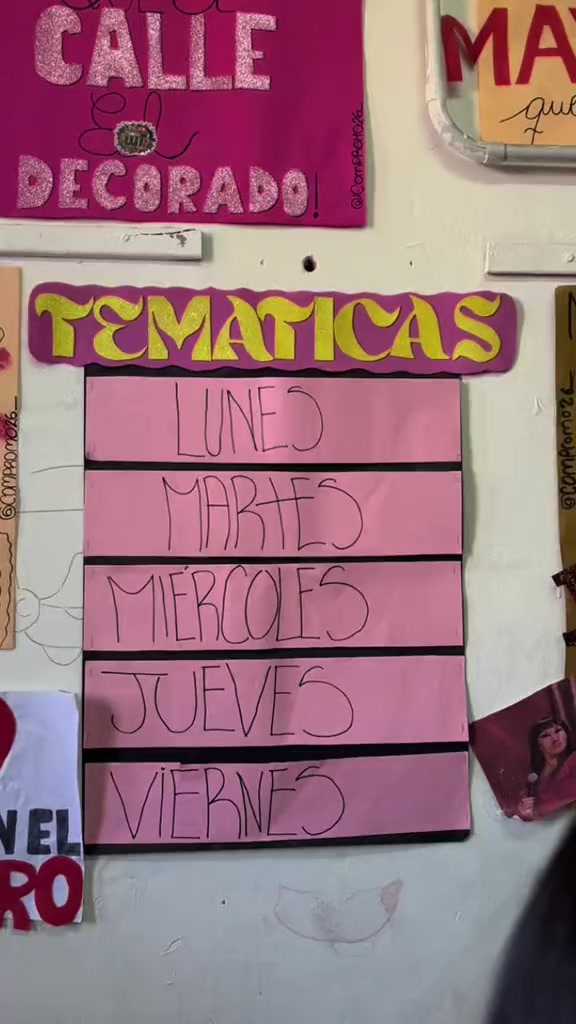 CALLE
El
DECORADO!
@COMPROMO26_
MA
que
TEMATICAS
LUNES
MARTES
MIÉRCOLES
JUEVES
VIERNES
@COMPROMO26_
@COMPROMO26_
N EL
RO